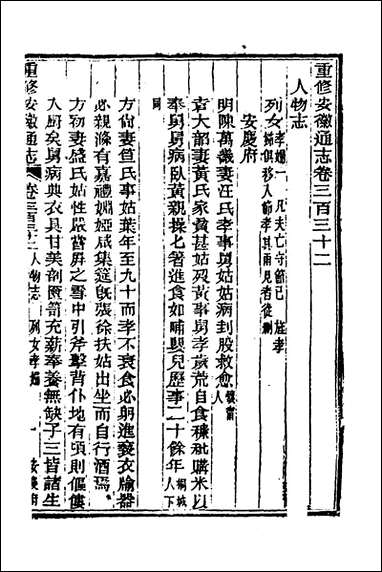 重修安徽通志卷三百三十二
人物志
列女孝婦一
安慶府
明陳萬義妻汪氏孝事舅姑姑病刲股救愈懷甯人
袁大部妻黃氏家貧甚姑歿黃事舅孝歲荒自食糠秕購米以
奉舅舅病臥黃親操匕箸進食如哺嬰兒歷事二十餘年桐城人下同
方尚妻笪氏事姑葉年至九十而孝不衰食必躬進褻衣牏器
必親滌有嘉禮姻婭咸集筵既張徐扶姑出坐而自行酒焉
方物妻盛氏姑性嚴嘗屏之雪中引斧擊背仆地有頃則偃僂
入廚矣舅病典衣具甘美剖匱笥充薪奉養無缺子三皆諸生
重修安徽通志 卷三百三十二 人物志 列女孝婦一 安慶府